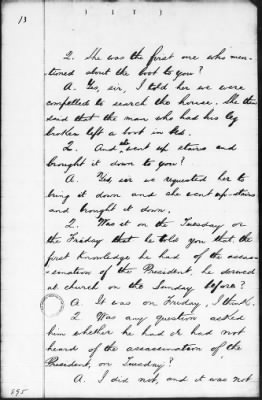 13
Q. She was the first one who men-
tioned about the boot to you?
A. Yes, sir, I told her we were
compelled to search the house. She then
said that the man who had his leg
broken left a boot in bed.
Q. And she went up stairs and
brought it down to you?
A. Yes, sir we requested her to
bring it down and she went up-stairs
and brought it down.
Q. Was it on the Tuesday or
the Friday that he told you that the
first knowledge he had of the assas-
sination of the President, he derived
at church on the Sunday before?
A. It was on Friday, I think.
Q. Was any question asked
him whether he had or had not
heard of the assassination of the
President, on Tuesday?
A. I did not, and it was not
895